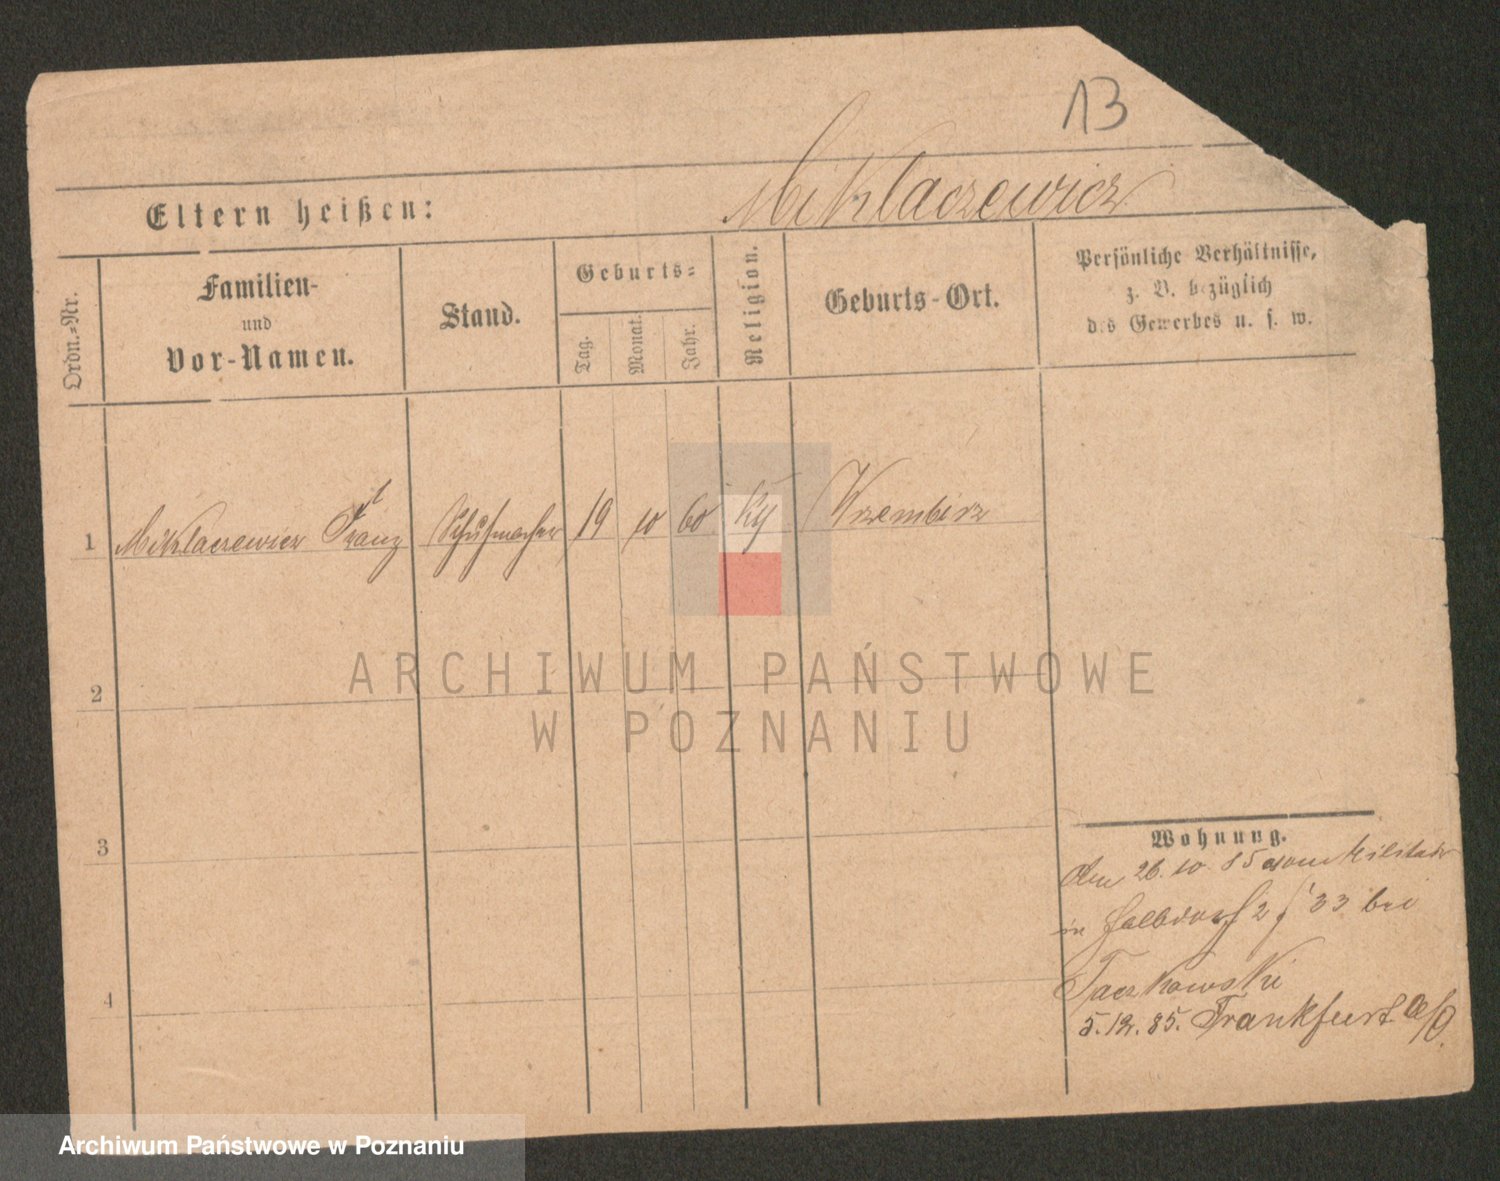 13
Miklaczewicz
Eltern heißen:
Ordn.=Nr.
Familien-
und
Vor-Namen.
Stand.
Geburts=
Tag.
Monat.
Jahr.
Religion.
Geburts-Ort.
Persönliche Verhältnisse,
z. B. bezüglich
des Gewerbes u. s. w.
1 Miklaczewicz Franz Schuhmacher 19 10 60
2
3
4
Wohnung.
Den 26. 10. 85 vom Militair
in Halbdorf 33 bei
Taczkowski
5.12.85. Frankfurt a/O.
ARCHIWUM PAŃSTWOWE
W POZNANIU
Archiwum Państwowe w Poznaniu